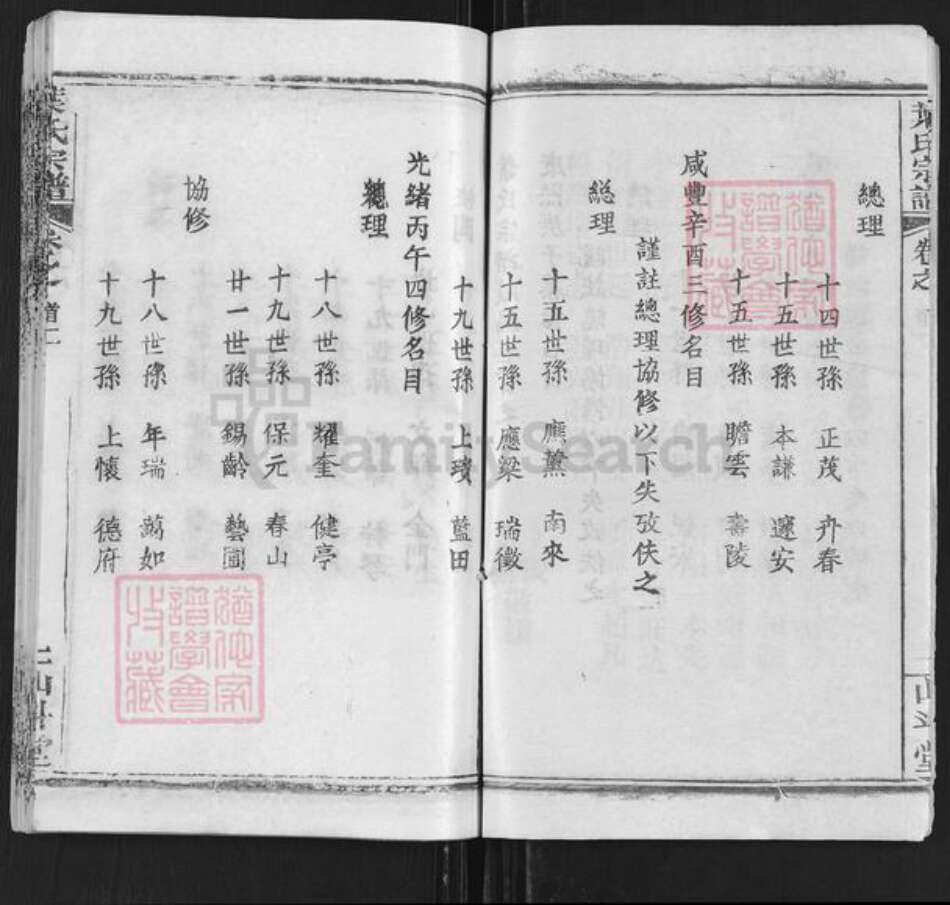 葉氏宗譜 卷之
山斗堂
總理
十四世孫 正茂 升春
十五世孫 本謙 邃安
十五世孫 瞻雲 壽陵
咸豐辛酉三修名目
謹註總理協修以下失攷佚之
總理
十五世孫 應薰 南來
十五世孫 應梁 瑞徵
十九世孫 上璸 藍田
光緒丙午四修名目
總理
十八世孫 耀奎 健亭
十九世孫 保元 春山
廿一世孫 錫齡 藝圃
協修
十八世孫 年瑞 藹如
十九世孫 上懷 德府
葉氏宗譜 卷之首上
山斗堂
猶他家譜學會收藏
猶他家譜學會收藏
FamilySearch